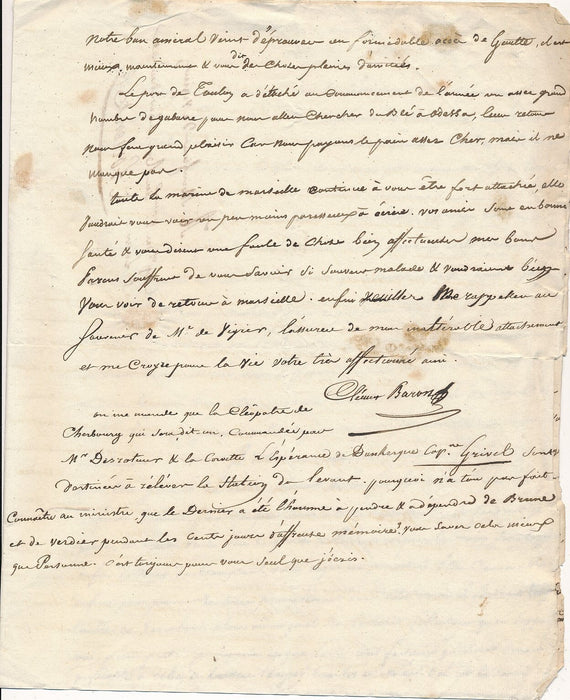 Notre bon amiral vient d'éprouver un formidable accès de Goutte, il est
mieux maintenant & vous dit des Choses pleines d'amitiés.
Le port de Toulon a détaché au commencement de l'année un assez grand
nombre de gabares pour nous aller Chercher du Blé à odessa, leur retour
nous fera grand plaisir Car nous payons le pain assez Cher, mais il ne
manque pas.
toute la marine de marseille continue à vous être fort attachée, elle
voudrait vous voir un peu moins paresseux à écrire. vos amis sont en bonne
santé & vous disent une foule de Choses bien affectueuses mes bons
Parens souffrent de vous savoir si souvent malade & voudraient bien
Vous voir de retour à marseille. enfin veuillez Me rappeler au
Souvenir de Mr. de Vigier, l'assurer de mon inaltérable attachement
et me Croyez pour la vie votre très affectionné ami.
Baron
on me mande que la Cléopatre de
Cherbourg qui sera, dit-on, Commandée par
Mr. Desrotours & la Corvette l'Espérance de Dunkerque Capne. Grivel sont
destinées à relever la Station du levant. pourquoi n'a-t'on pas fait
Connaître au ministre que le Dernier a été l'homme à pendre & à dépendre de Brune
et de verdier pendant les Cents jours d'affreuse mémoire? vous savez cela mieux
que Personne. C'est toujours pour vous seul que j'écris.